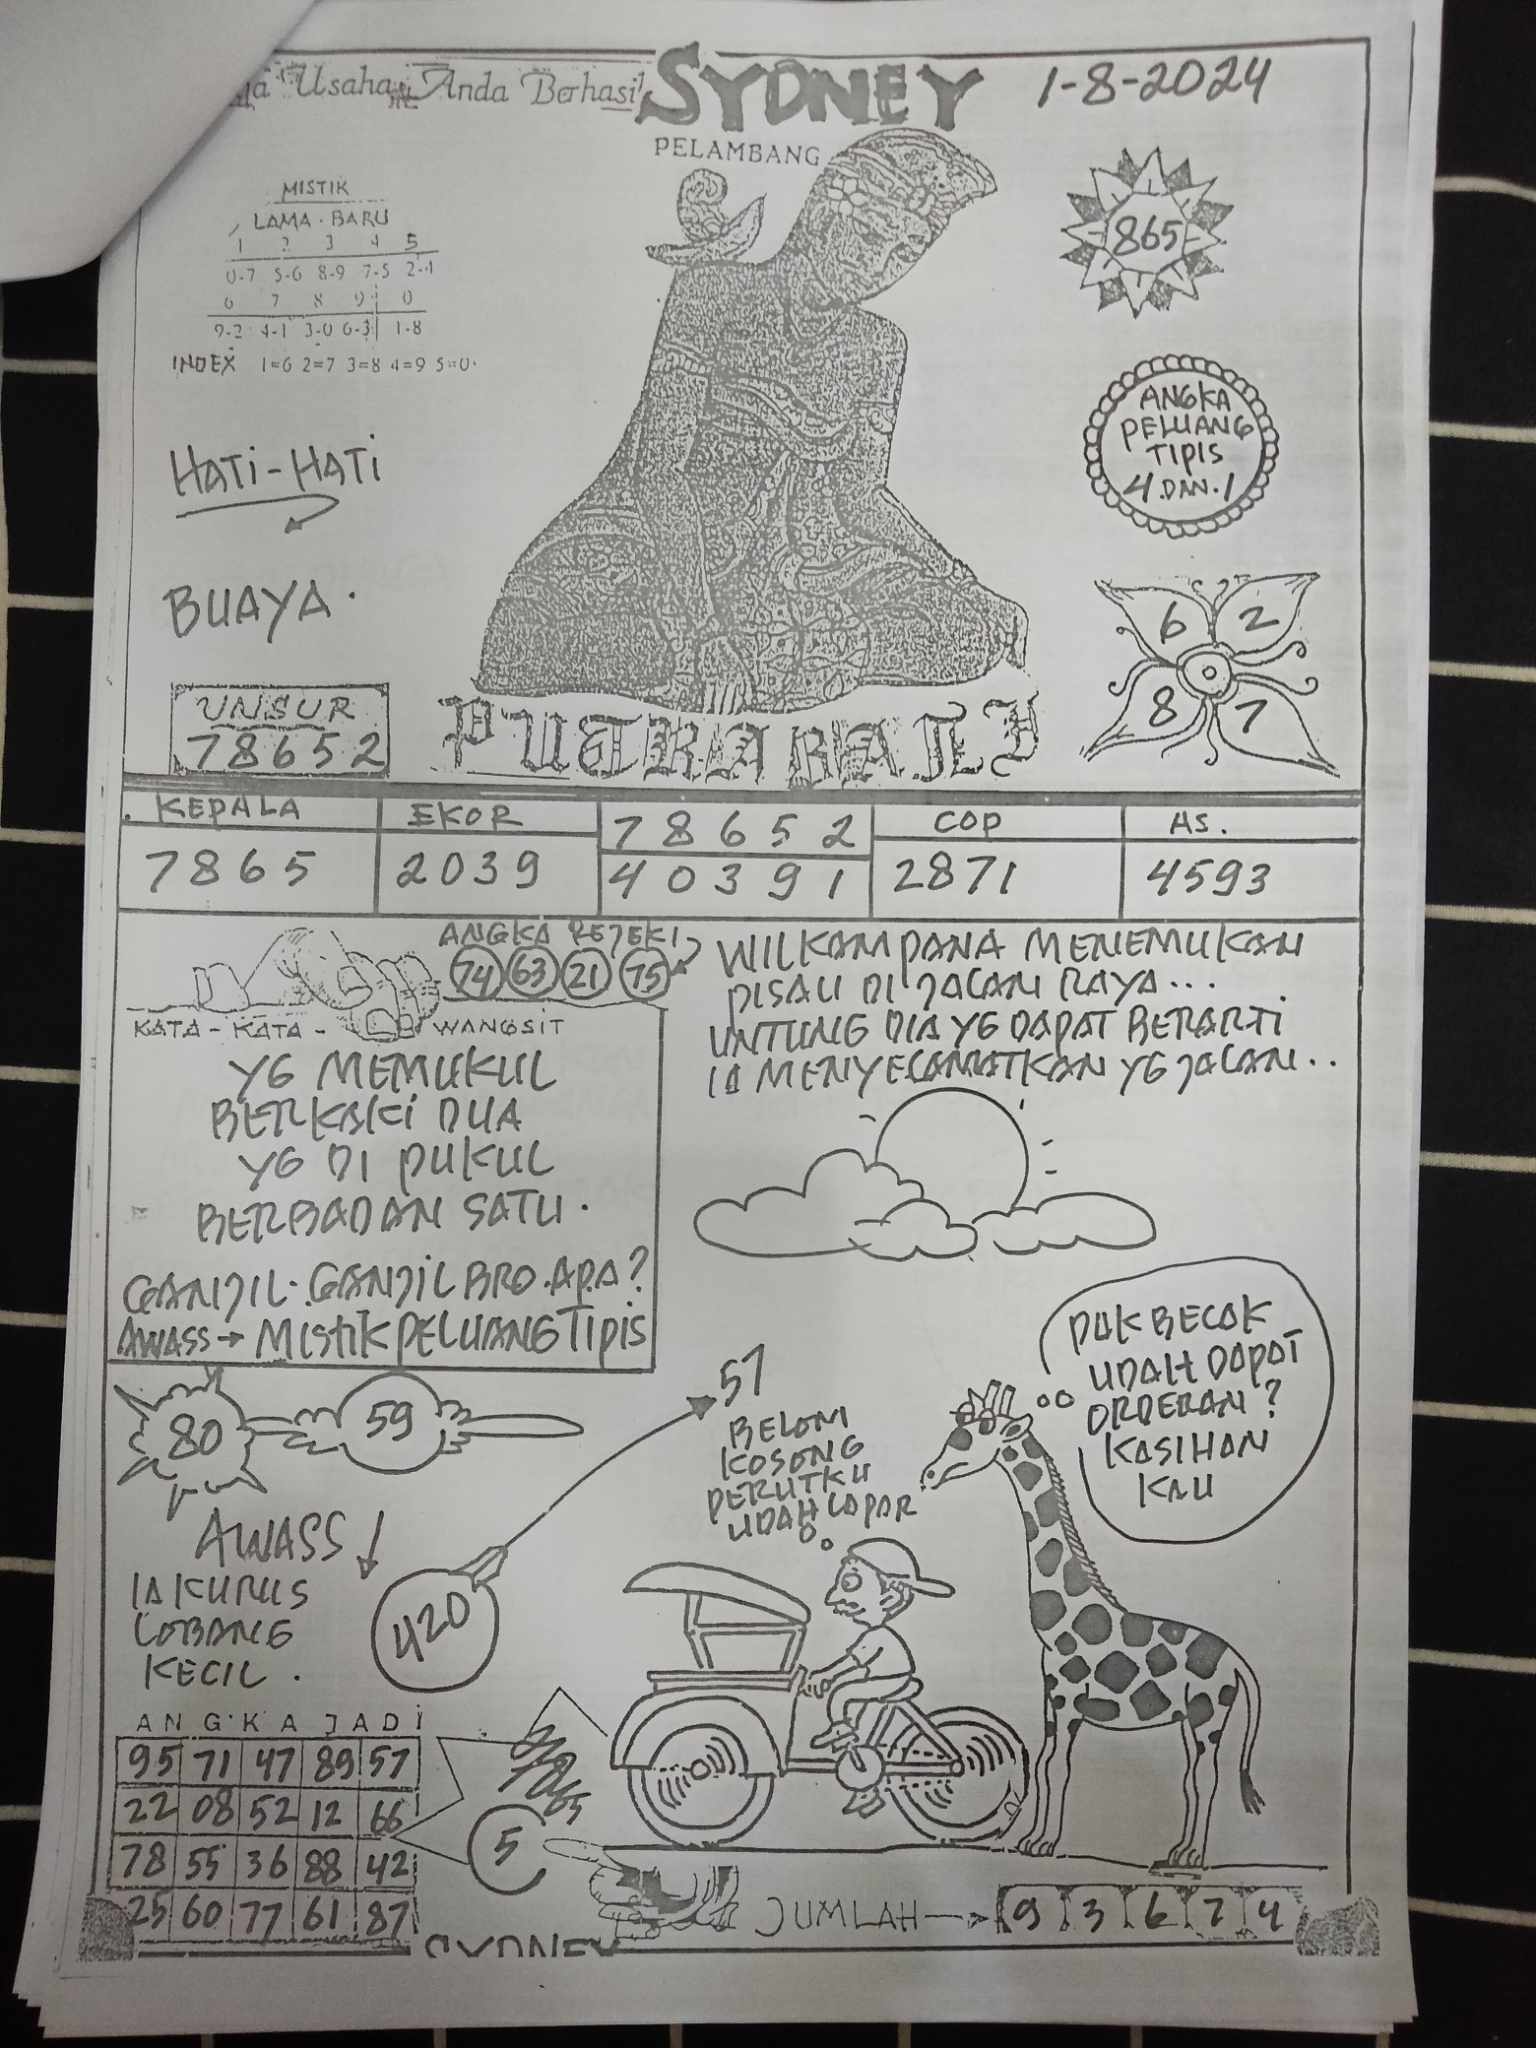 Usaha Anda Berhasil
SYDNEY
1-8-2024
PELAMBANG
MISTIK
LAMA · BARU
1 2 3 4 5
0-7 5-6 8-9 7-5 2-4
6 7 8 9 0
9-2 4-1 3-0 6-3 1-8
INDEX 1=6 2=7 3=8 4=9 5=0
865
ANGKA
PELUANG
TIPIS
4.DAN.1
HATI-HATI
BUAYA.
6 2
8 7
UNSUR
78652
PUTRA BALI
KEPALA
7865
EKOR
2039
7 8 6 5 2
4 0 3 9 1
COP
2871
AS.
4593
ANGKA REJEKI
74 63 21 75
KATA-KATA- WANGSIT
YG MEMUKUL
BERKAKI DUA
YG DI PUKUL
BERBADAN SATU.
GANJIL-GANJIL BRO.APA?
AWASS→ MISTIK PELUANG TIPIS
WILKAMPANA MENEMUKAN
PISAU DI JALAN RAYA...
UNTUNG DIA YG DAPAT BERARTI
IA MENYELAMATKAN YG JALAN..
80
59
57
PAK BECAK
UDAH DAPAT
ORDERAN?
KASIHAN
KAU
BELOM
KOSONG
PERUTKU
UDAH LAPAR
AWASS
IA KURUS
LOBANG
KECIL.
420
ANGKA JADI
95 71 47 89 57
22 08 52 12 66
78 55 36 88 42
25 60 77 61 87
5
JUMLAH→ 9 3 6 7 4
SYDNEY